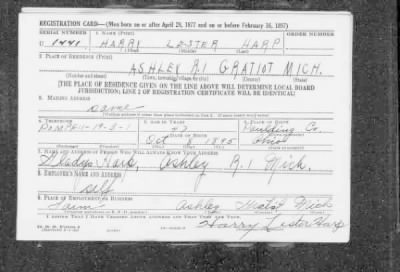 REGISTRATION CARD—(Men born on or after April 28, 1877 and on or before February 16, 1897)
SERIAL NUMBER 1. NAME (Print) ORDER NUMBER
U 1441 HARRY LESTER HARP
2. PLACE OF RESIDENCE (Print)
ASHLEY R.1 GRATIOT MICH.
(Number and street) (Town, township, village, or city) (County) (State)
[THE PLACE OF RESIDENCE GIVEN ON THE LINE ABOVE WILL DETERMINE LOCAL BOARD
JURISDICTION; LINE 2 OF REGISTRATION CERTIFICATE WILL BE IDENTICAL]
3. MAILING ADDRESS
Same
4. TELEPHONE 5. AGE IN YEARS 6. PLACE OF BIRTH
Pompeii-19-2-1 47 Paulding Co.
DATE OF BIRTH
Oct 8 1895 Ohio
7. NAME AND ADDRESS OF PERSON WHO WILL ALWAYS KNOW YOUR ADDRESS
Gladys Harp, Ashley R.1 Mich.
8. EMPLOYER'S NAME AND ADDRESS
self
9. PLACE OF EMPLOYMENT OR BUSINESS
Farm Ashley Gratiot Mich
I AFFIRM THAT I HAVE VERIFIED ABOVE ANSWERS AND THAT THEY ARE TRUE.
Harry Lester Harp